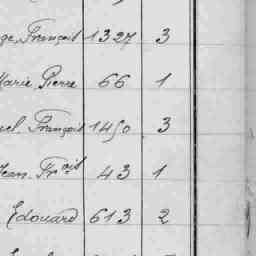 François 1327 3
Marie Pierre 66 1
François 1450 3
Jean Frois 43 1
Edouard 613 2